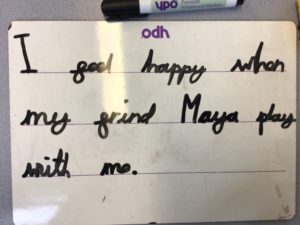 ypo
odh
I feel happy when
my frind Maya play
with me.